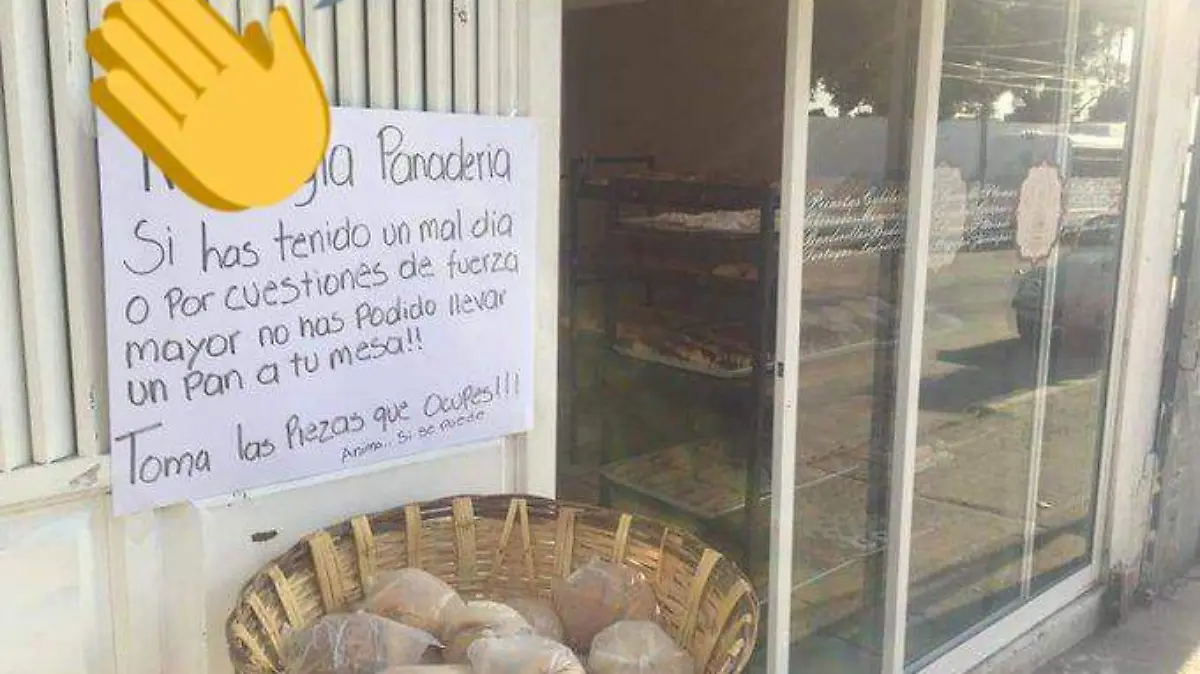 Panaderia
Si has tenido un mal dia
o por cuestiones de fuerza
mayor no has podido llevar
un pan a tu mesa!!
Toma las Piezas que Ocupes!!!
Animo.. Si se puede